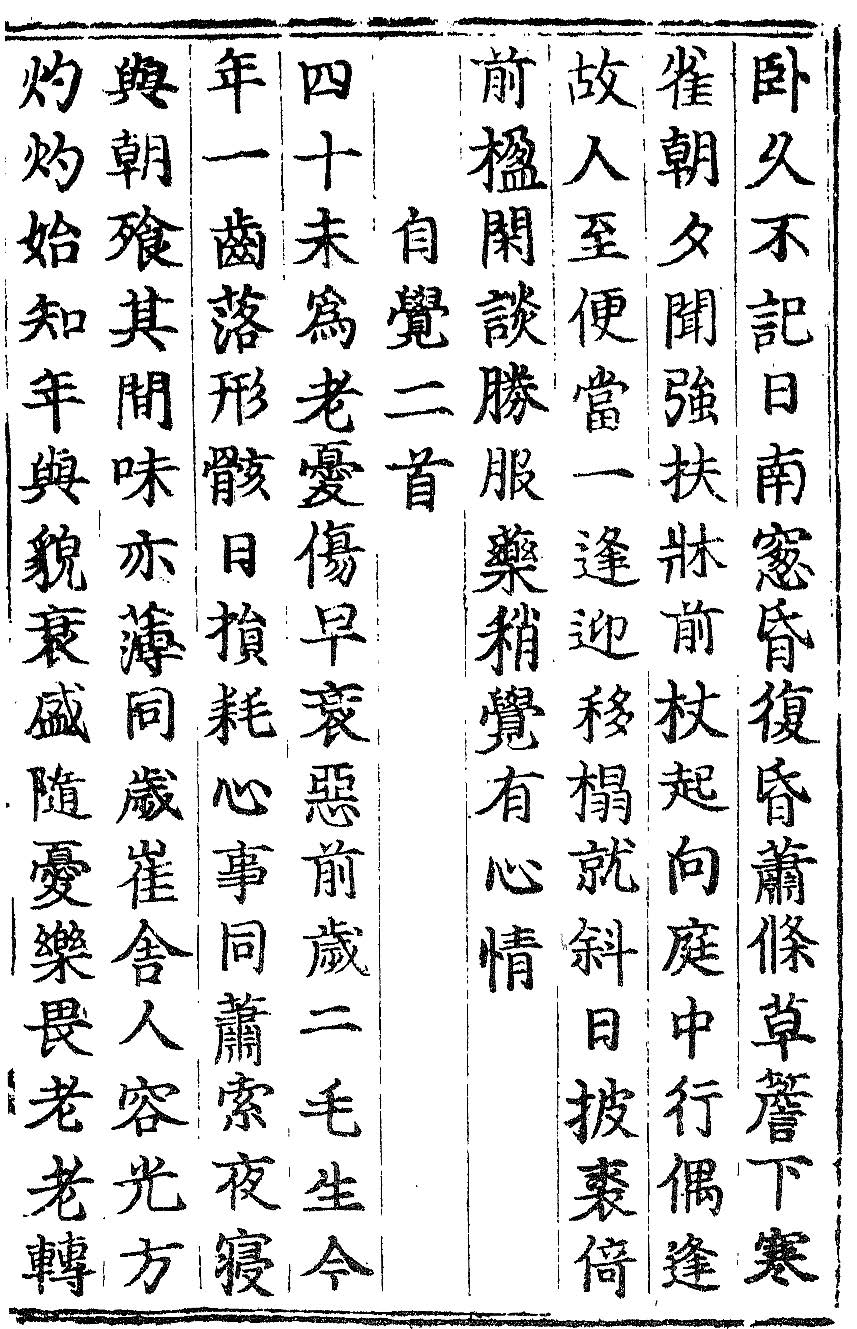 卧久不記日南窻昏復昏蕭條草簷下寒
雀朝夕聞強扶牀前杖起向庭中行偶逢
故人至便當一逢迎移榻就斜日披裘倚
前楹閑談勝服藥稍覺有心情
自覺二首
四十未爲老憂傷早衰惡前歲二毛生今
年一齒落形骸日損耗心事同蕭索夜寢
與朝飡其間味亦薄同歲崔舍人容光方
灼灼始知年與貌衰盛隨憂樂畏老老轉